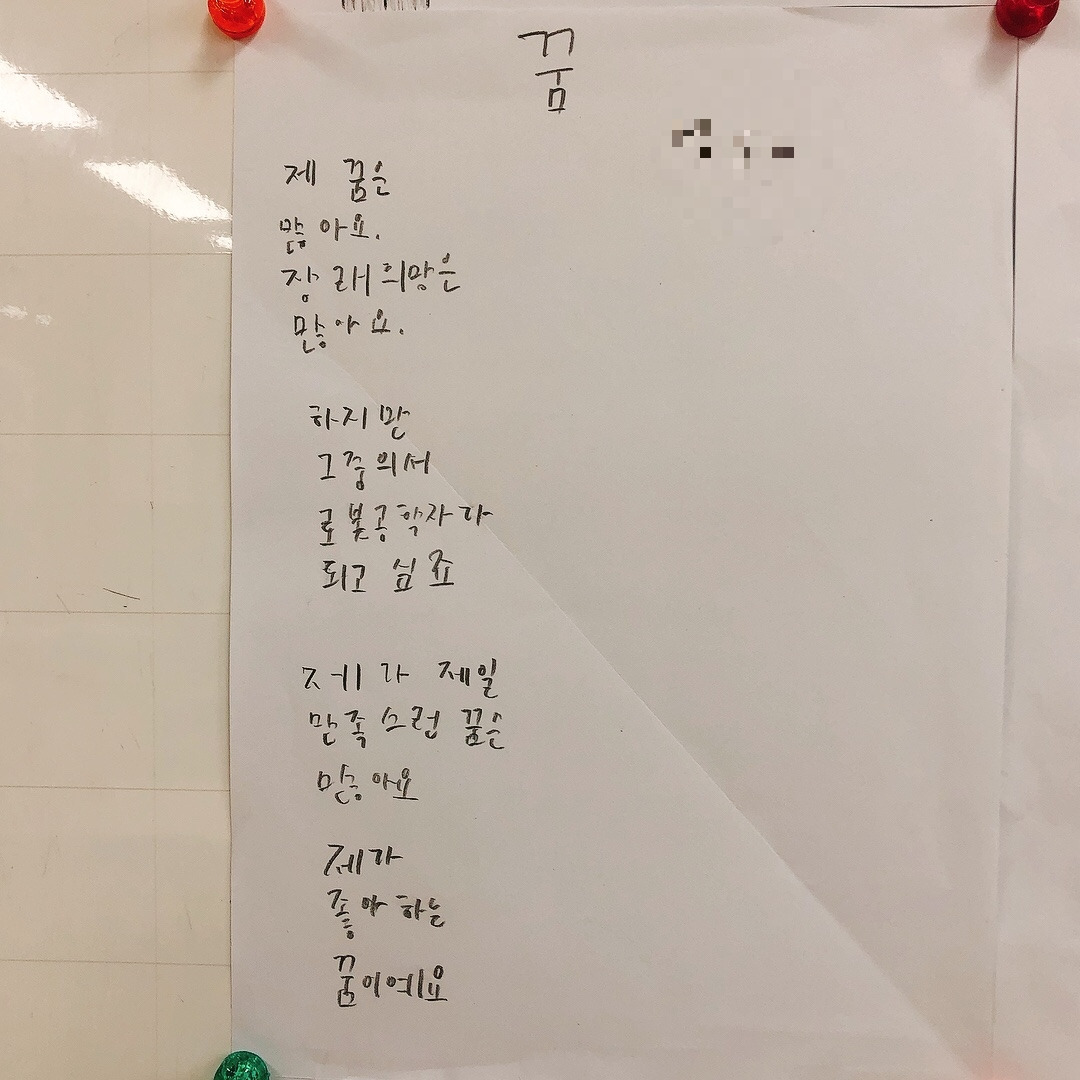 꿈
제 꿈은
많아요.
장래희망은
많아요.
하지만
그중의서
로봋공학자가
되고 싶죠
제가 제일
만족스런 꿈은
많아요
제가
좋아하는
꿈이예요